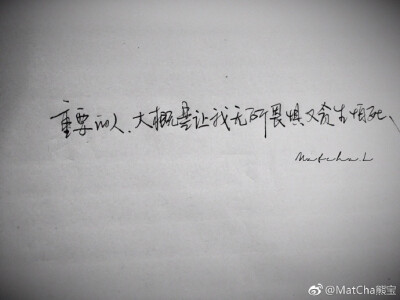 重要的人、大概是让我无所畏惧又贪生怕死、
Matcha.L
@MatCha熊宝